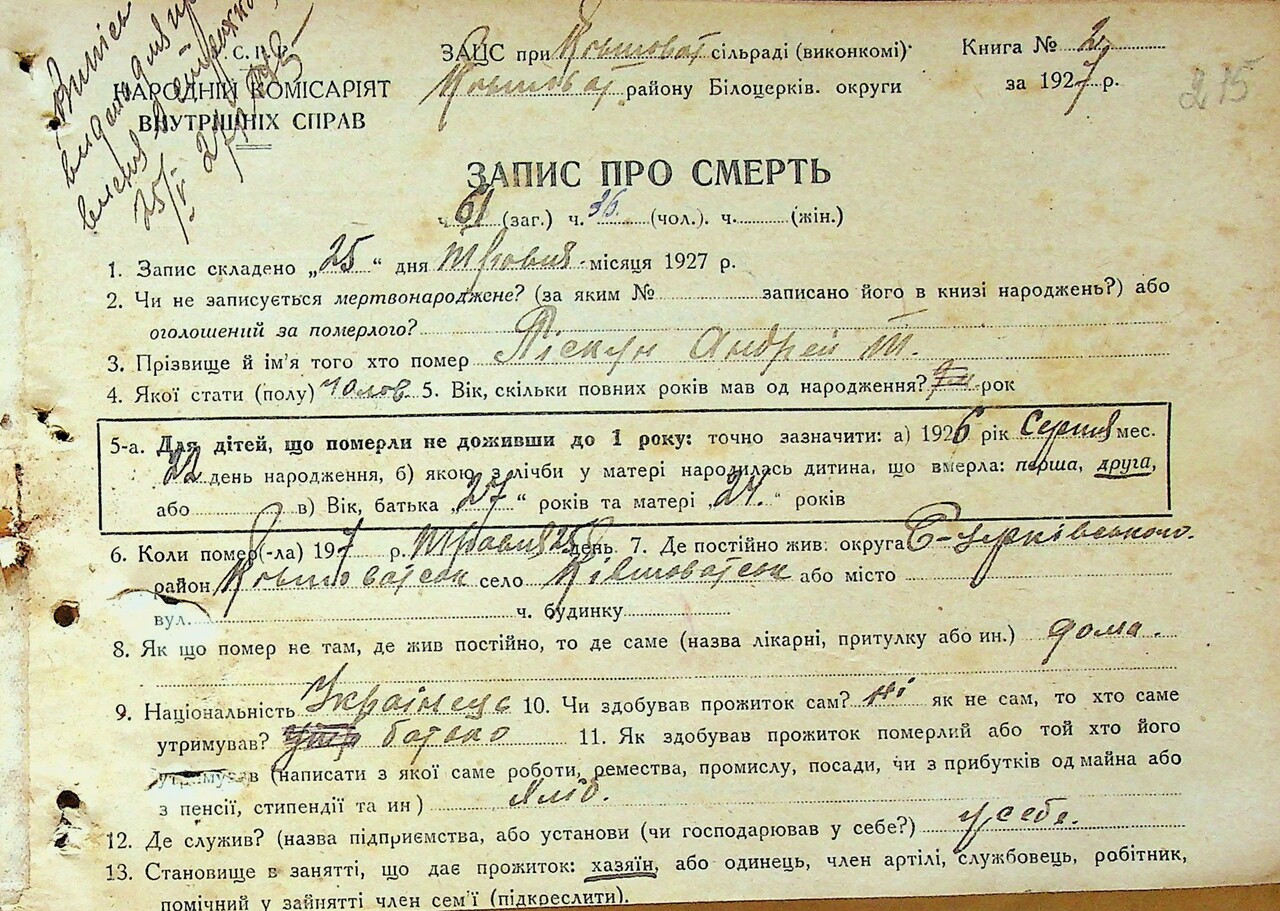 Випись
С.Р.Р.
НАРОДНІЙ КОМІСАРІЯТ
ВНУТРІШНІХ СПРАВ
ЗАЦС при Ковшоват сільраді (виконкомі)
Ковшоват. району Білоцерків. округи
Книга № 2
за 1927 р.
275
ЗАПИС ПРО СМЕРТЬ
ч. 61 (заг.) ч. 36 (чол.). ч. (жін.)
1. Запис складено „25“ дня травня місяця 1927 р.
2. Чи не записується мертвонароджене? (за яким № записано його в книзі народжень?) або
оголошений за померлого?
3. Прізвище й ім'я того хто помер Піскун Андрей Т.
4. Якої стати (полу) чолов. 5. Вік, скільки повних років мав од народження? рок
5-а. Для дітей, що померли не доживши до 1 року: точно зазначити: а) 1926 рік Серпня мес.
22 день народження, б) якою з лічби у матері народилась дитина, що вмерла: перша, друга,
або в) Вік, батька „27“ років та матері „24.“ років
6. Коли помер(-ла) 197 р. травня 25 день 7. Де постійно жив: округа Б-Церківського.
район Ковшоватськ село Ківшоватськ або місто
вул. ч. будинку
8. Як що помер не там, де жив постійно, то де саме (назва лікарні, притулку або ин.) дома.
9. Національність Українець 10. Чи здобував прожиток сам? ні як не сам, то хто саме
утримував? батько 11. Як здобував прожиток померлий або той хто його
утримував (написати з якої саме роботи, ремества, промислу, посади, чи з прибутків од майна або
з пенсії, стипендії та ин)
12. Де служив? (назва підприємства, або установи (чи господарював у себе?) у себе.
13. Становище в занятті, що дає прожиток: хазяїн, або одинець, член артілі, службовець, робітник,
помічний у зайнятті член сем'ї (підкреслити).